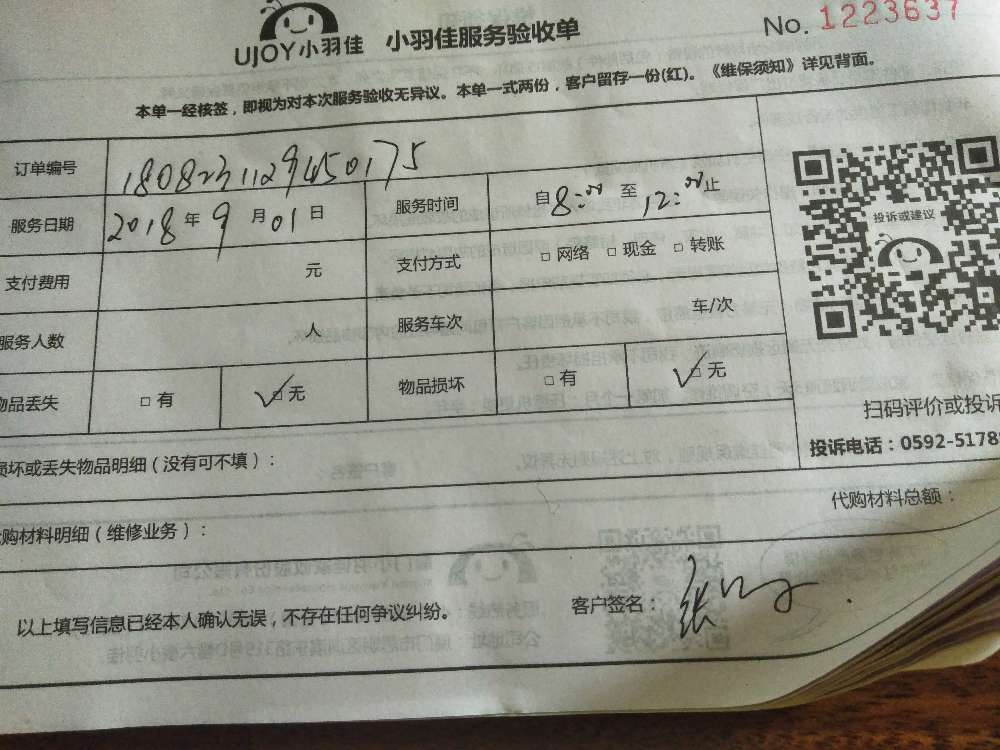 UJOY小羽佳 小羽佳服务验收单 No. 1223637
本单一经核签，即视为对本次服务验收无异议。本单一式两份，客户留存一份(红)。《维保须知》详见背面。
订单编号 1808231129450175
服务日期 2018年9月01日 服务时间 自8:00至12:00止
投诉或建议
支付费用 元 支付方式 □网络 □现金 □转账
服务人数 人 服务车次 车/次
物品丢失 □有 ☑无 物品损坏 □有 ☑无
扫码评价或投诉
投诉电话：0592-5178
损坏或丢失物品明细（没有可不填）：
代购材料明细（维修业务）： 代购材料总额：
以上填写信息已经本人确认无误，不存在任何争议纠纷。 客户签名： 张